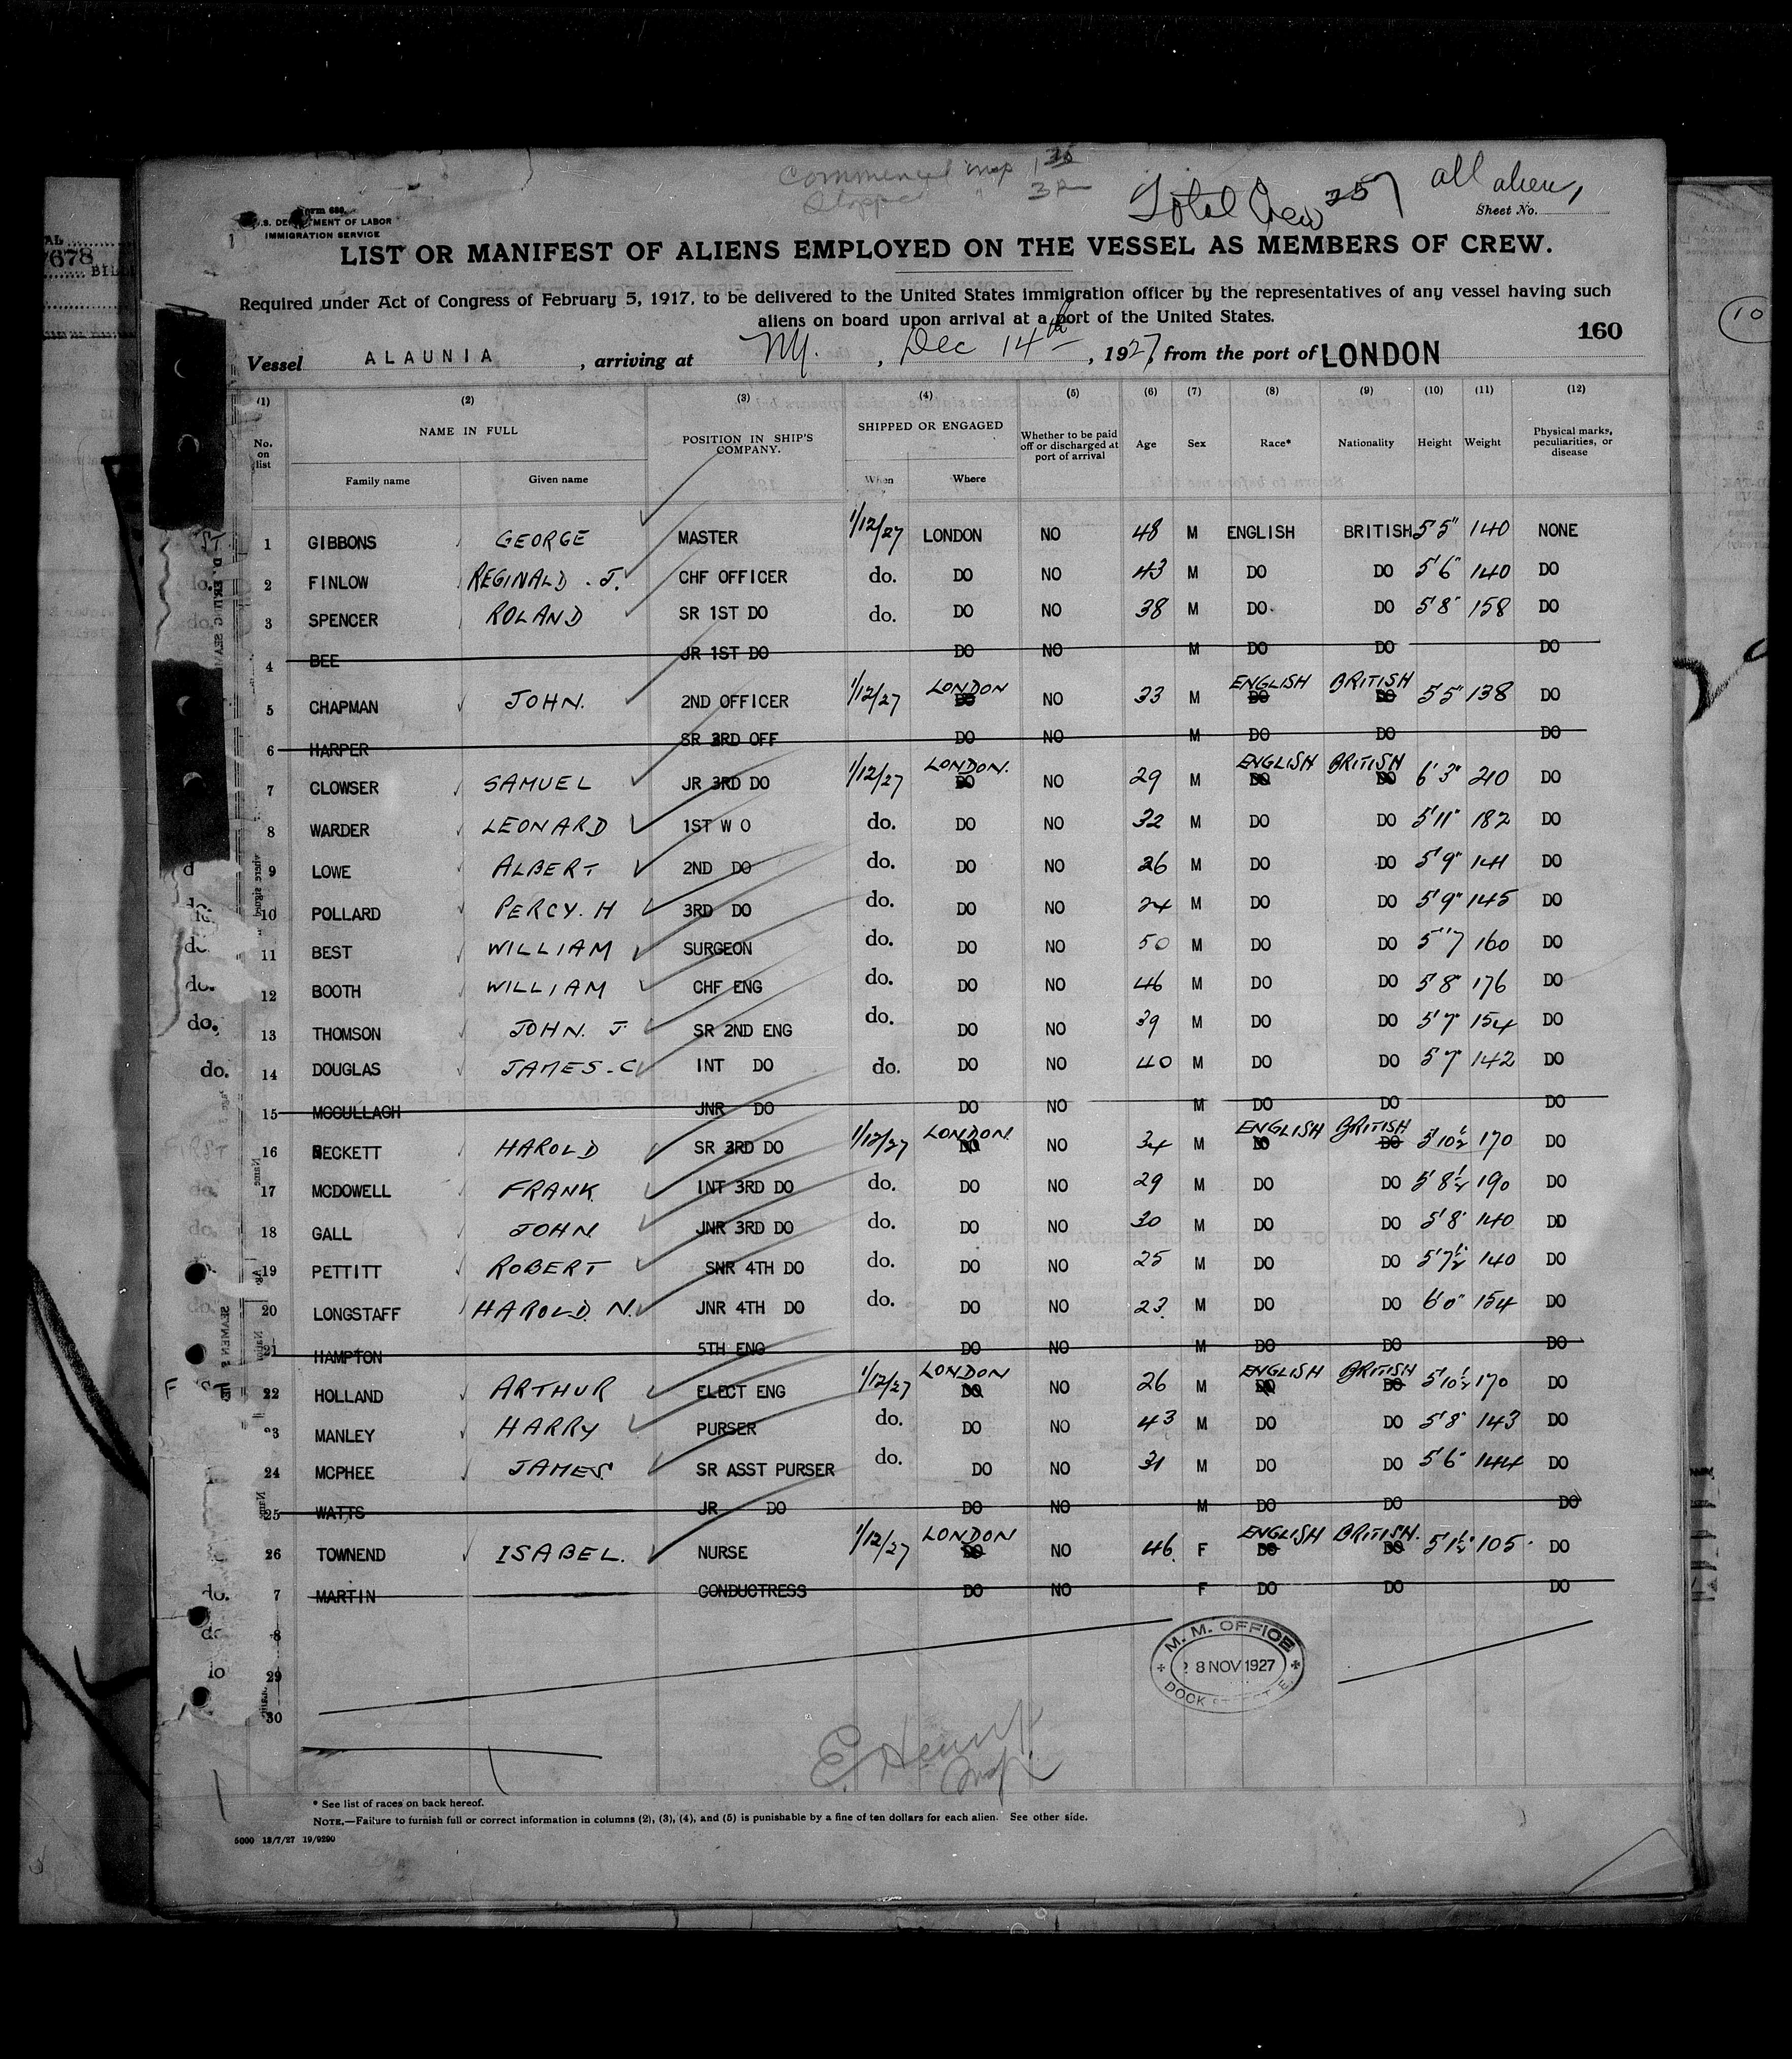 Commenced insp 1 30
Stopped " 3 P
Total Crew 257 all aliens
Form 680
U.S. DEPARTMENT OF LABOR
IMMIGRATION SERVICE
Sheet No. 1
LIST OR MANIFEST OF ALIENS EMPLOYED ON THE VESSEL AS MEMBERS OF CREW.
Required under Act of Congress of February 5, 1917, to be delivered to the United States immigration officer by the representatives of any vessel having such
aliens on board upon arrival at a port of the United States.
160
Vessel ALAUNIA, arriving at NY., Dec 14th, 1927 from the port of LONDON
(1) (2) (3) (4) (5) (6) (7) (8) (9) (10) (11) (12)
No. on list NAME IN FULL POSITION IN SHIP'S COMPANY. SHIPPED OR ENGAGED Whether to be paid off or discharged at port of arrival Age Sex Race* Nationality Height Weight Physical marks, peculiarities, or disease
Family name Given name When Where
1 GIBBONS GEORGE MASTER 1/12/27 LONDON NO 48 M ENGLISH BRITISH 5'5" 140 NONE
2 FINLOW REGINALD. J. CHF OFFICER do. DO NO 43 M DO DO 5'6" 140 DO
3 SPENCER ROLAND SR 1ST DO do. DO NO 38 M DO DO 5'8" 158 DO
4 BEE JR 1ST DO DO NO M DO DO DO
5 CHAPMAN JOHN. 2ND OFFICER 1/12/27 LONDON DO NO 33 M ENGLISH DO BRITISH DO 5'5" 138 DO
6 HARPER SR 3RD OFF DO NO M DO DO DO
7 CLOWSER SAMUEL JR 3RD DO 1/12/27 LONDON. DO NO 29 M ENGLISH DO BRITISH DO 6'3" 210 DO
8 WARDER LEONARD 1ST W O do. DO NO 32 M DO DO 5'11" 182 DO
9 LOWE ALBERT 2ND DO do. DO NO 26 M DO DO 5'9" 141 DO
10 POLLARD PERCY. H 3RD DO do. DO NO 24 M DO DO 5'9" 145 DO
11 BEST WILLIAM SURGEON do. DO NO 50 M DO DO 5"7 160 DO
12 BOOTH WILLIAM CHF ENG do. DO NO 46 M DO DO 5'8" 176 DO
13 THOMSON JOHN. J. SR 2ND ENG do. DO NO 39 M DO DO 5'7" 154 DO
14 DOUGLAS JAMES. C INT DO do. DO NO 40 M DO DO 5'7" 142 DO
15 MCCULLAGH JNR DO DO NO M DO DO DO
16 BECKETT HAROLD SR 3RD DO 1/12/27 LONDON. DO NO 34 M ENGLISH DO BRITISH DO 5'10½ 170 DO
17 MCDOWELL FRANK. INT 3RD DO do. DO NO 29 M DO DO 5'8½ 190 DO
18 GALL JOHN JNR 3RD DO do. DO NO 30 M DO DO 5'8" 140 DO
19 PETTITT ROBERT SNR 4TH DO do. DO NO 25 M DO DO 5'7½ 140 DO
20 LONGSTAFF HAROLD. N. JNR 4TH DO do. DO NO 23. M DO DO 6'0" 154 DO
21 HAMPTON 5TH ENG DO NO M DO DO DO
22 HOLLAND ARTHUR ELECT ENG 1/12/27 LONDON DO NO 26 M ENGLISH DO BRITISH DO 5'10½ 170 DO
23 MANLEY HARRY PURSER do. DO NO 43 M DO DO 5'8" 143 DO
24 MCPHEE JAMES SR ASST PURSER do. DO NO 31 M DO DO 5'6" 144 DO
25 WATTS JR DO DO NO M DO DO DO
26 TOWNEND ISABEL. NURSE 1/12/27 LONDON DO NO 46. F ENGLISH DO BRITISH. DO 5'1½" 105 DO
7 MARTIN CONDUCTRESS DO NO F DO DO DO
8
29
30
M. M. OFFICE
28 NOV 1927
DOCK STREET E.
* See list of races on back hereof.
NOTE.—Failure to furnish full or correct information in columns (2), (3), (4), and (5) is punishable by a fine of ten dollars for each alien. See other side.
5000 13/7/27 19/9290